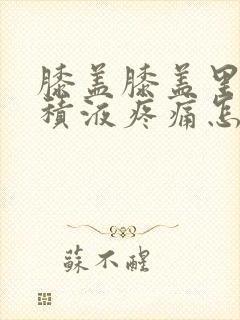 膝盖膝盖里
積液疼痛怎
蘇不醒